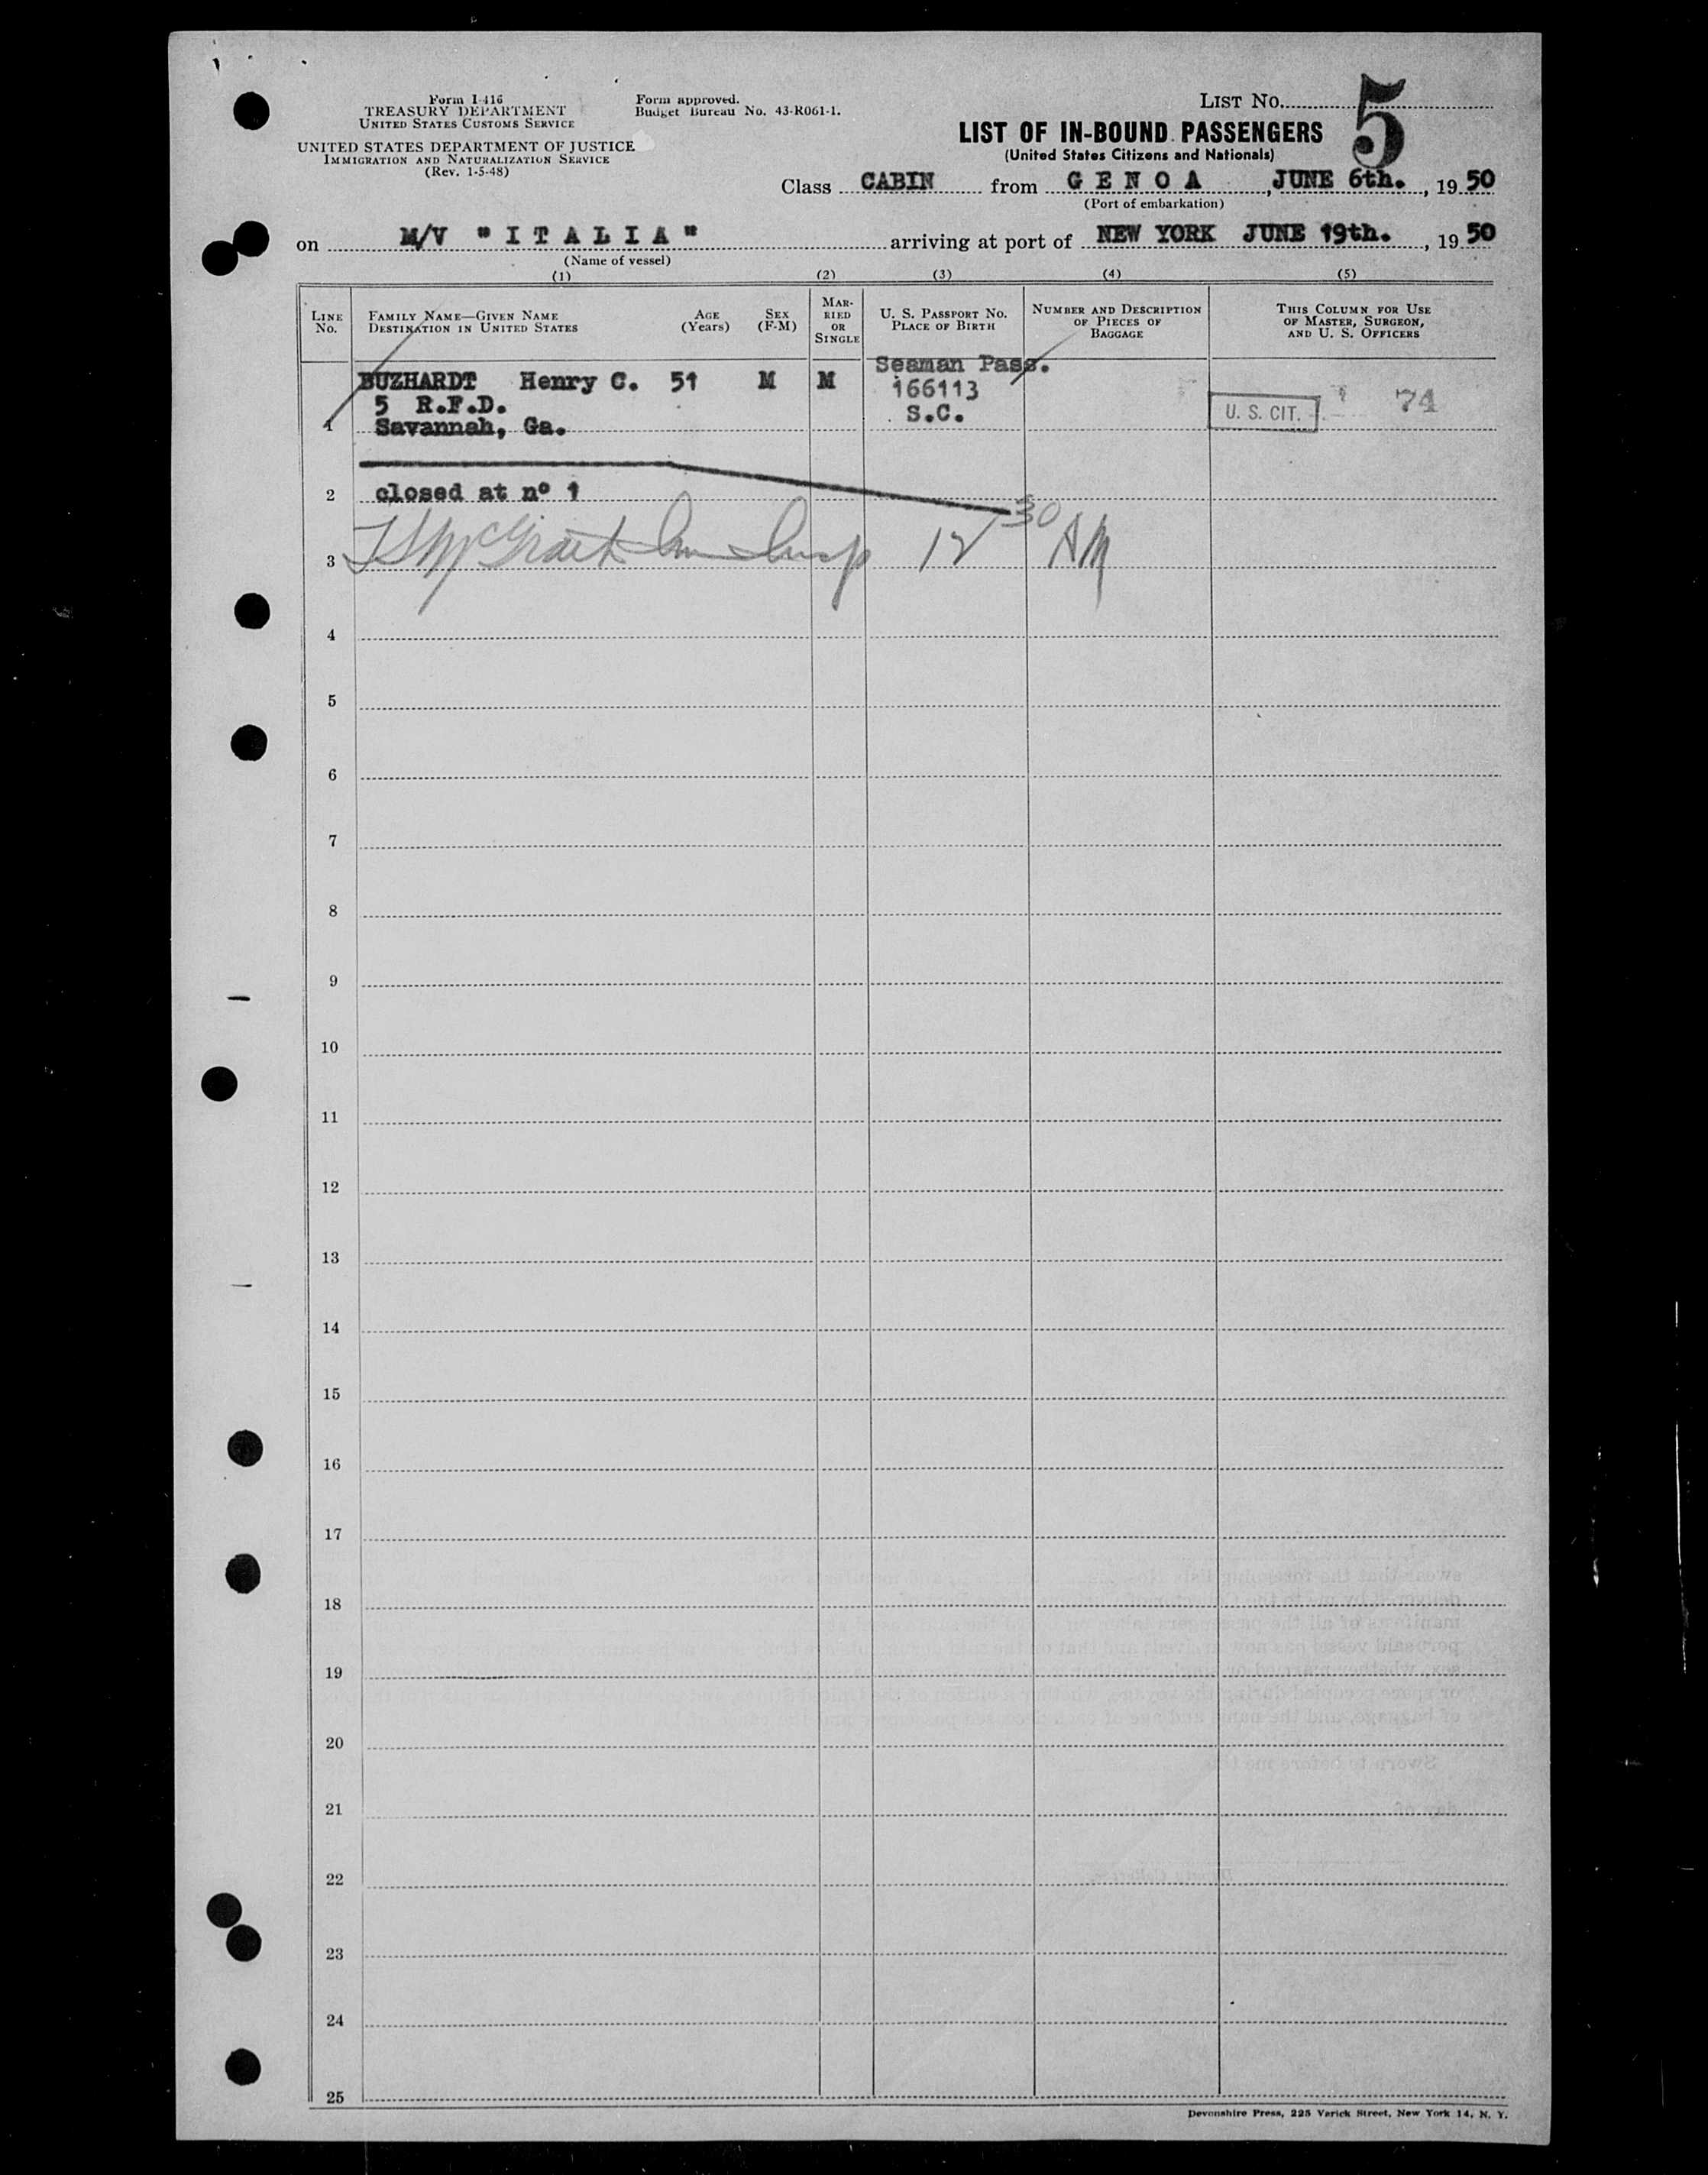 Form I-416
TREASURY DEPARTMENT
UNITED STATES CUSTOMS SERVICE
UNITED STATES DEPARTMENT OF JUSTICE
IMMIGRATION AND NATURALIZATION SERVICE
(Rev. 1-5-48)
Form approved.
Budget Bureau No. 43-R061-1.
LIST No. 5
LIST OF IN-BOUND PASSENGERS
(United States Citizens and Nationals)
Class CABIN from G E N O A , JUNE 6th. , 19 50
(Port of embarkation)
on M/V "I T A L I A" arriving at port of NEW YORK JUNE 19th. , 19 50
(Name of vessel)
(1) (2) (3) (4) (5)
LINE No.
FAMILY NAME—GIVEN NAME
DESTINATION IN UNITED STATES
AGE (Years)
SEX (F-M)
MARRIED OR SINGLE
U. S. PASSPORT NO.
PLACE OF BIRTH
NUMBER AND DESCRIPTION OF PIECES OF BAGGAGE
THIS COLUMN FOR USE OF MASTER, SURGEON, AND U. S. OFFICERS
1 BUZHARDT Henry C. 51 M M Seaman Pass.
5 R.F.D. 166113
Savannah, Ga. S.C. U. S. CIT. 74
2 closed at nº 1
3 12 30 AM
4
5
6
7
8
9
10
11
12
13
14
15
16
17
18
19
20
21
22
23
24
25
Devonshire Press, 225 Varick Street, New York 14, N. Y.